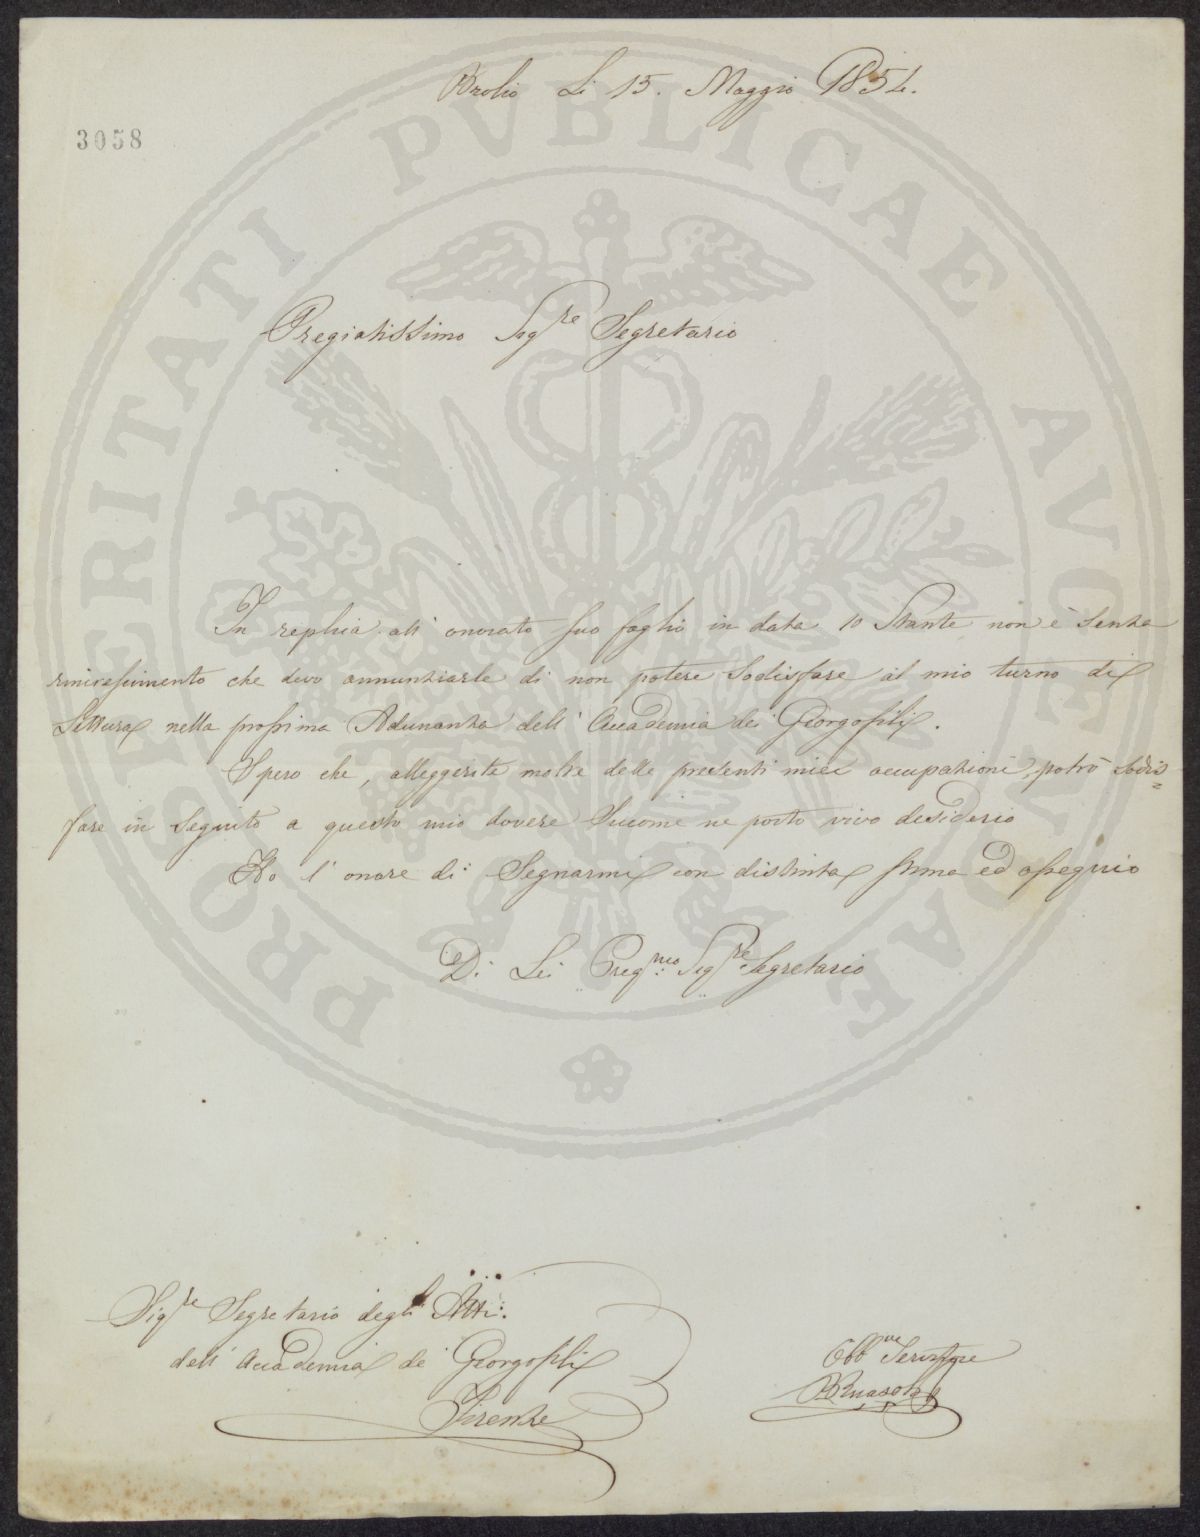 Brolio Li 15. Maggio 1854.
3058
PROSPERITATI PVBLICAE AVGENDAE
Pregiatissimo Sig.re Segretario
In replica all' onorato suo foglio in data 10 Stante non è senza
rincrescimento che devo annunziarle di non potere Sodisfare al mio turno di
Lettura nella prossima Adunanza dell' Accademia dei Georgofili.
Spero che, alleggerite molte delle presenti mie occupazioni, potrò sodis=
fare in seguito a questo mio dovere Siccome ne porto vivo desiderio
Ho l' onore di Segnarmi con distinta stima ed ossequio
Di Lei Preg.mo Sig.re Segretario
Sig.re Segretario degli Atti.
dell' Accademia de' Georgofili
Firenze
Obb.mo Servitore